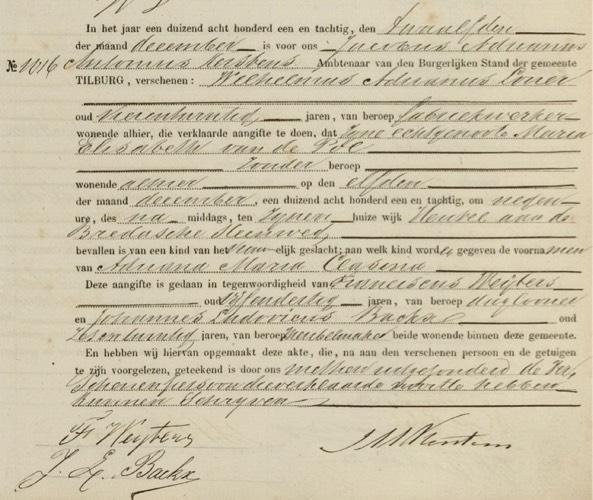 In het jaar een duizend acht honderd een en tachtig, den twaalfden
der maand december is voor ons Jacobus Adrianus
№ 1016 Antonius Ambtenaar van den Burgerlijken Stand der gemeente
TILBURG, verschenen: Wilhelmus Adrianus
oud jaren, van beroep fabriekwerker
wonende alhier, die verklaarde aangifte te doen, dat zyne echtgenoote Maria
Elisabeth van de Pol
zonder beroep
wonende alhier op den elfden
der maand december, een duizend acht honderd een en tachtig, om negen
urg, des na middags, ten zynen huize wijk Heikee aan de
Bredasche Steenweg
bevallen is van een kind van het elijk geslacht; aan welk kind word gegeven de voornamen
van Adriana Maria
Deze aangifte is gedaan in tegenwoordigheid van Franciscus Weijters
oud jaren, van beroep daglooner
en Johannes Ludovicus Backx oud
jaren, van beroep Meubelmaker beide wonende binnen deze gemeente.
En hebben wij hiervan opgemaakt deze akte, die, na aan den verschenen persoon en de getuigen
te zijn voorgelezen, geteekend is door ons met hen uitgezonderd de Ver
schenen persoon die verklaarde nooit te hebben
kunnen Schryven
Fr Weyters
J. L. Backx